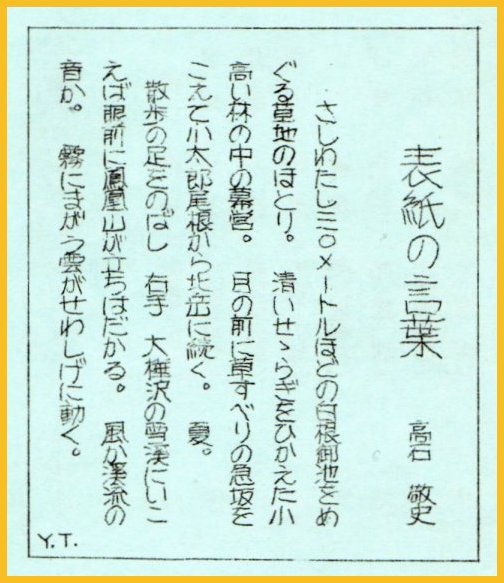 表紙の言葉
高石 敬史
さしわたし三〇メートルほどの白根御池をめ
ぐる草地のほとり。 清いせゝらぎをひかえた小
高い林の中の幕営。 目の前に草すべりの急坂を
こえて小太郎尾根から北岳に続く。 夏。
散歩の足をのばし 右手 大樺沢の雪渓にいこ
えば眼前に鳳凰山が立ちはだかる。 風か渓流の
音か。 霧にまがう雲がせわしげに動く。
Y.T.